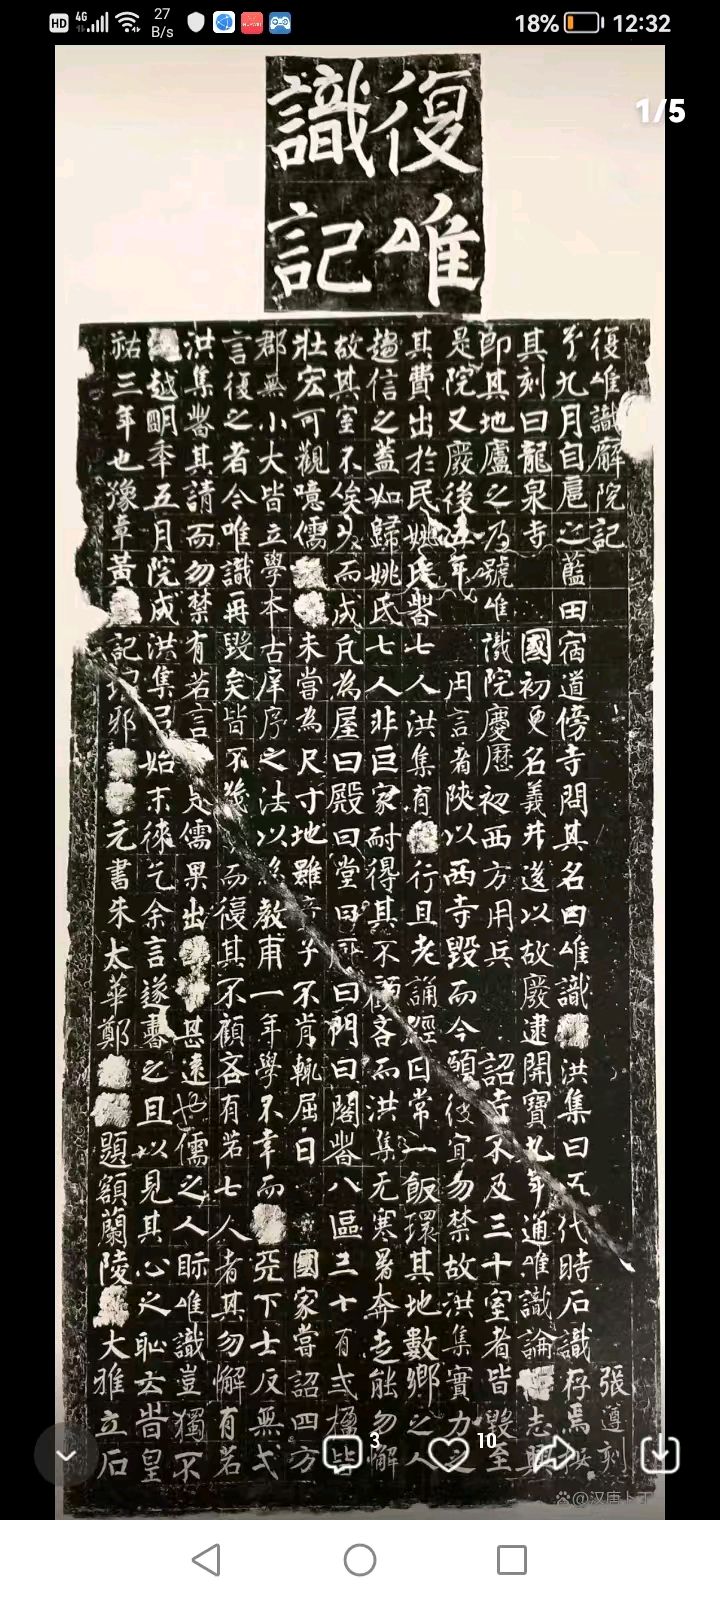 HD 4G 27 B/s 18% 12:32
1/5
復唯
識記
復唯識廨院記 張遵刻
九月自扈之藍田宿道傍寺問其名曰唯識洪集曰五代時石識存焉按
其刻曰龍泉寺 國初更名義井遂以故廢逮開寶九年通唯識論志興
即其地廬之乃號唯識院慶曆初西方用兵 詔寺不及三十室者皆毀至
是院又廢後年 用言者陝以西寺毀而今願復宜勿禁故洪集實力之
其費出於民姚氏砦七人洪集有行且老誦經日常一飯環其地數鄉之人
趨信之蓋如歸姚氏七人非巨家耐得其不顧吝而洪集无寒暑奔走能勿懈
故其室不俟久而成凡為屋曰殿曰堂曰曰門曰閣砦八區三十有弍楹皆
壯宏可觀噫儒未嘗為尺寸地雖子不肯輒屈日 國家嘗詔四方
郡無小大皆立學本古庠序之法以為教甫一年學不幸而亞下士反無弍
言復之者今唯識再毀矣皆不幾而復其不顧吝有若七人者其勿懈有若
洪集砦其請而勿禁有若言是儒果出甚遠也儒之人眎唯識豈獨不
越明年五月院成洪集始末徠乞余言遂書之且以見其心之恥云旹皇
祐三年也豫章黃記邪元書朱太華鄭題額蘭陵大雅立石
3
10